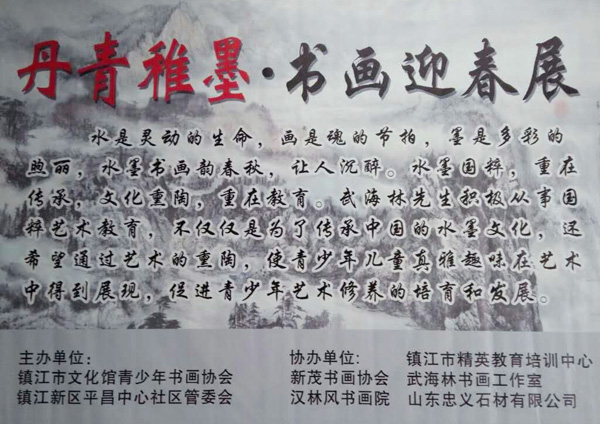 丹青稚墨·书画迎春展
水是灵动的生命，画是魂的节拍，墨是多彩的
煦丽，水墨书画韵春秋，让人沉醉。水墨国粹，重在
传承，文化熏陶，重在教育。武海林先生积极从事国
粹艺术教育，不仅仅是为了传承中国的水墨文化，还
希望通过艺术的熏陶，使青少年儿童真雅趣味在艺术
中得到展现，促进青少年艺术修养的培育和发展。
主办单位：
镇江市文化馆青少年书画协会
镇江新区平昌中心社区管委会
协办单位：
镇江市精英教育培训中心
新茂书画协会 武海林书画工作室
汉林风书画院 山东忠义石材有限公司